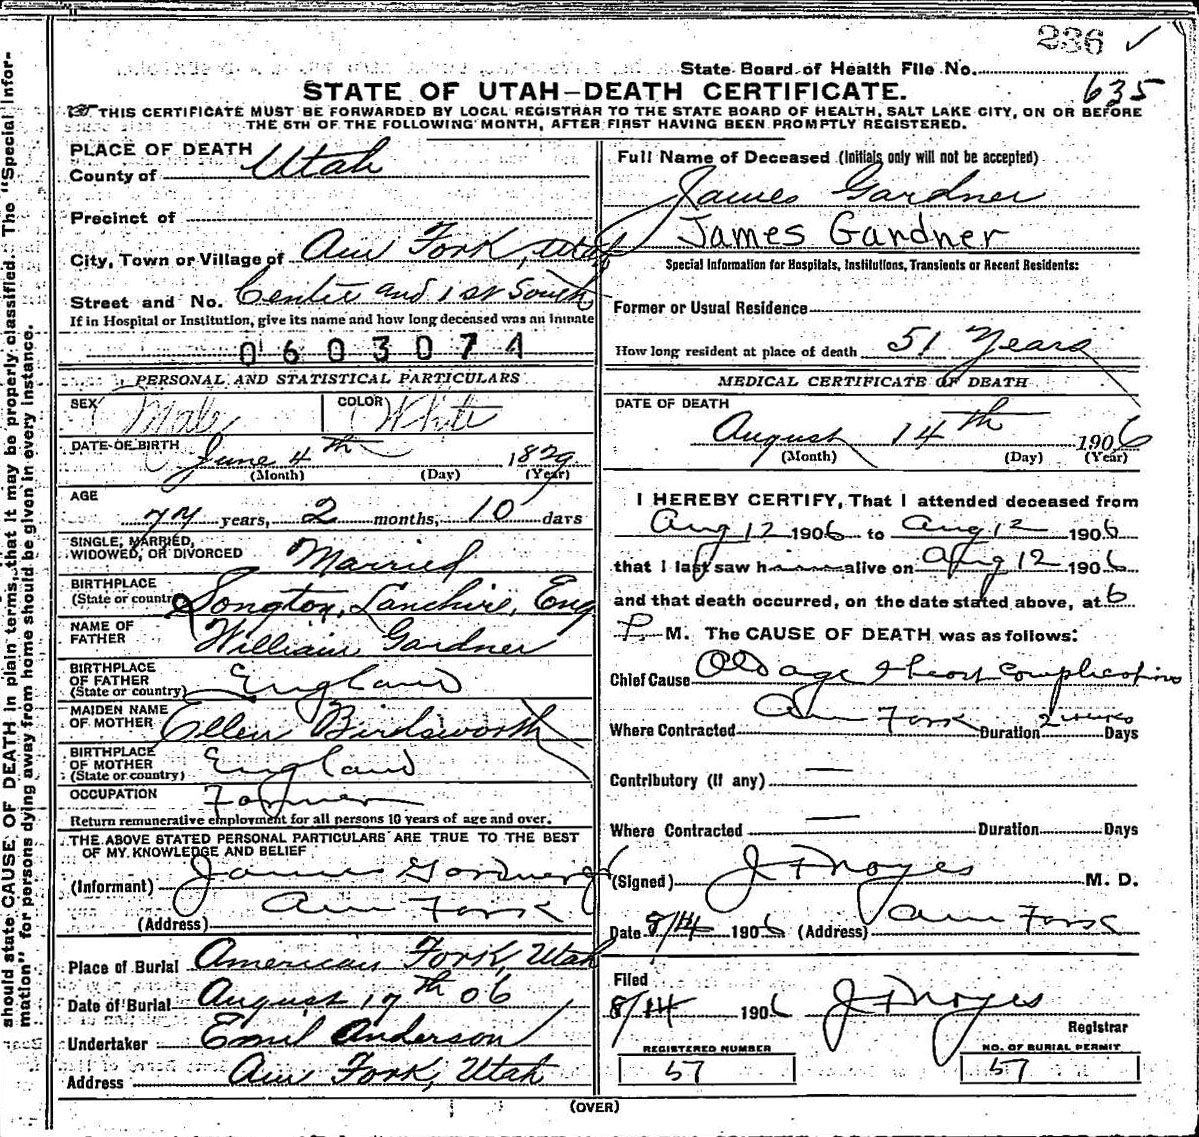 236 ✓
State Board of Health File No.
635
STATE OF UTAH—DEATH CERTIFICATE.
THIS CERTIFICATE MUST BE FORWARDED BY LOCAL REGISTRAR TO THE STATE BOARD OF HEALTH, SALT LAKE CITY, ON OR BEFORE
THE 5TH OF THE FOLLOWING MONTH, AFTER FIRST HAVING BEEN PROMPTLY REGISTERED.
should state CAUSE OF DEATH in plain terms, that it may be properly classified. The "Special Infor-
mation" for persons dying away from home should be given in every instance.
PLACE OF DEATH
County of Utah
Precinct of
City, Town or Village of Am Fork, Utah
Street and No. Centre and 1st South
If in Hospital or Institution, give its name and how long deceased was an inmate
0603071
PERSONAL AND STATISTICAL PARTICULARS
SEX Male COLOR White
DATE OF BIRTH June 4th 1829
(Month) (Day) (Year)
AGE
77 years, 2 months, 10 days
SINGLE, MARRIED,
WIDOWED, OR DIVORCED Married
BIRTHPLACE
(State or country) Songton, Lanchire, Eng
NAME OF
FATHER William Gardner
BIRTHPLACE
OF FATHER
(State or country) England
MAIDEN NAME
OF MOTHER Ellen Birdsworth
BIRTHPLACE
OF MOTHER
(State or country) England
OCCUPATION Farmer
Return remunerative employment for all persons 10 years of age and over.
THE ABOVE STATED PERSONAL PARTICULARS ARE TRUE TO THE BEST
OF MY KNOWLEDGE AND BELIEF
(Informant) James Gardner Jr
(Address) Am Fork
Place of Burial American Fork, Utah
Date of Burial August 17th 06
Undertaker Emil Anderson
Address Am Fork, Utah
Full Name of Deceased (Initials only will not be accepted)
James Gardner
James Gardner
Special Information for Hospitals, Institutions, Transients or Recent Residents:
Former or Usual Residence
How long resident at place of death 51 Years
MEDICAL CERTIFICATE OF DEATH
DATE OF DEATH
August 14th 1906
(Month) (Day) (Year)
I HEREBY CERTIFY, That I attended deceased from
Aug 12 1906 to Aug 12 1906
that I last saw him alive on Aug 12 1906
and that death occurred, on the date stated above, at 6
P. M. The CAUSE OF DEATH was as follows:
Chief Cause Old age & heart Complications
Where Contracted Am Fork Duration 2 weeks Days
Contributory (If any) —
Where Contracted — Duration Days
(Signed) J F Noyes M. D.
Date 8/14 1906 (Address) Am Fork
Filed
8/14 1906 J F Noyes
Registrar
REGISTERED NUMBER NO. OF BURIAL PERMIT
57 57
(OVER)